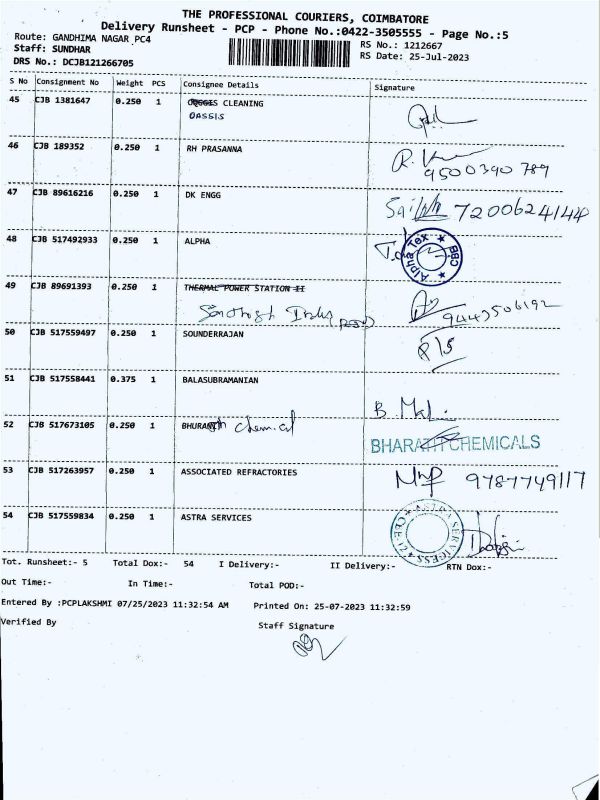 THE PROFESSIONAL COURIERS, COIMBATORE
Delivery Runsheet - PCP - Phone No.:0422-3505555 - Page No.:5
Route: GANDHIMA NAGAR PC4
RS No.: 1212667
Staff: SUNDHAR
RS Date: 25-Jul-2023
DRS No.: DCJB121266705
S No Consignment No Weight PCS Consignee Details Signature
45 CJB 1381647 0.250 1 CLEANING
OASSIS
46 CJB 189352 0.250 1 RH PRASANNA
9500390789
47 CJB 89616216 0.250 1 DK ENGG
7200624144
48 CJB 517492933 0.250 1 ALPHA
Alpha Tex CBE
49 CJB 89691393 0.250 1 THERMAL POWER STATION II
9443506192
50 CJB 517559497 0.250 1 SOUNDERRAJAN
51 CJB 517558441 0.375 1 BALASUBRAMANIAN
B. Mal.
52 CJB 517673105 0.250 1 chemical
BHARATH CHEMICALS
53 CJB 517263957 0.250 1 ASSOCIATED REFRACTORIES
9787749117
54 CJB 517559834 0.250 1 ASTRA SERVICES
Tot. Runsheet:- 5 Total Dox:- 54 I Delivery:- II Delivery:- RTN Dox:-
Out Time:- In Time:- Total POD:-
Entered By :PCPLAKSHMI 07/25/2023 11:32:54 AM Printed On: 25-07-2023 11:32:59
Verified By Staff Signature